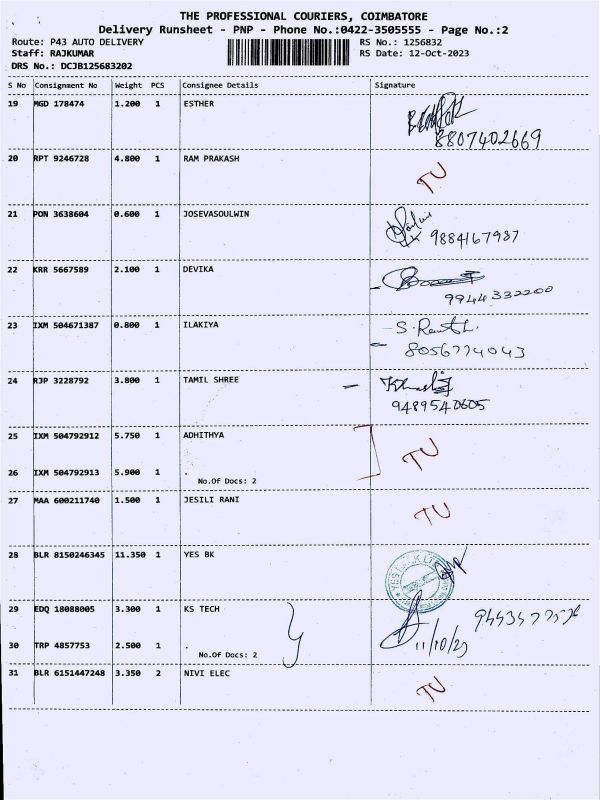 THE PROFESSIONAL COURIERS, COIMBATORE
Delivery Runsheet - PNP - Phone No.:0422-3505555 - Page No.:2
Route: P43 AUTO DELIVERY RS No.: 1256832
Staff: RAJKUMAR RS Date: 12-Oct-2023
DRS No.: DCJB125683202
S No Consignment No Weight PCS Consignee Details Signature
19 MGD 178474 1.200 1 ESTHER
8807402669
20 RPT 9246728 4.800 1 RAM PRAKASH TU
21 PON 3638604 0.600 1 JOSEVASOULWIN
9884167987
22 KRR 5667589 2.100 1 DEVIKA
9944332200
23 IXM 504671387 0.800 1 ILAKIYA
8056774043
24 RJP 3228792 3.800 1 TAMIL SHREE
9489540605
25 IXM 504792912 5.750 1 ADHITHYA TU
26 IXM 504792913 5.900 1 .
No.Of Docs: 2
27 MAA 600211740 1.500 1 JESILI RANI TU
28 BLR 8150246345 11.350 1 YES BK
29 EDQ 18088005 3.300 1 KS TECH
30 TRP 4857753 2.500 1 . 11/10/23
No.Of Docs: 2
31 BLR 6151447248 3.350 2 NIVI ELEC TU